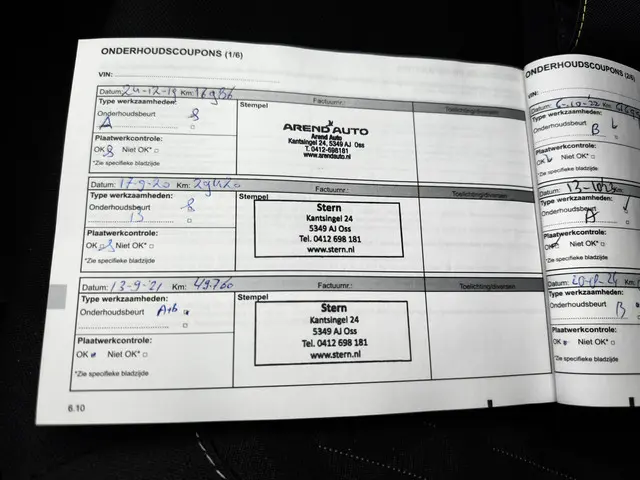 ONDERHOUDSCOUPONS (1/6)
VIN:
Datum: 24-12-19 Km:
Factuurnr.:
Toelichting/diversen
Type werkzaamheden:
Stempel
Onderhoudsbeurt
A
Plaatwerkcontrole:
OK Niet OK* □
*Zie specifieke bladzijde
AREND AUTO
Arend Auto
Kantsingel 24, 5349 AJ Oss
T. 0412-698181
www.arendauto.nl
Datum: 17-9-20 Km:
Factuurnr.:
Toelichting/diversen
Type werkzaamheden:
Stempel
Onderhoudsbeurt
B
Plaatwerkcontrole:
OK Niet OK* □
*Zie specifieke bladzijde
Stern
Kantsingel 24
5349 AJ Oss
Tel. 0412 698 181
www.stern.nl
Datum: 13-9-21 Km: 49.760
Factuurnr.:
Toelichting/diversen
Type werkzaamheden:
Stempel
Onderhoudsbeurt A+b
Plaatwerkcontrole:
OK Niet OK* □
*Zie specifieke bladzijde
Stern
Kantsingel 24
5349 AJ Oss
Tel. 0412 698 181
www.stern.nl
6.10
ONDERHOUDSCOUPONS (2/6)
VIN:
Datum: 6-10-22 Km:
Type werkzaamheden:
Onderhoudsbeurt
B
Plaatwerkcontrole:
OK Niet OK* □
*Zie specifieke bladzijde
Datum:
Type werkzaamheden:
Onderhoudsbeurt
A
Plaatwerkcontrole:
Niet OK* □
*Zie specifieke bladzijde
Datum: Km:
Type werkzaamheden:
Onderhoudsbeurt
B
Plaatwerkcontrole:
OK Niet OK* □
*Zie specifieke bladzijde